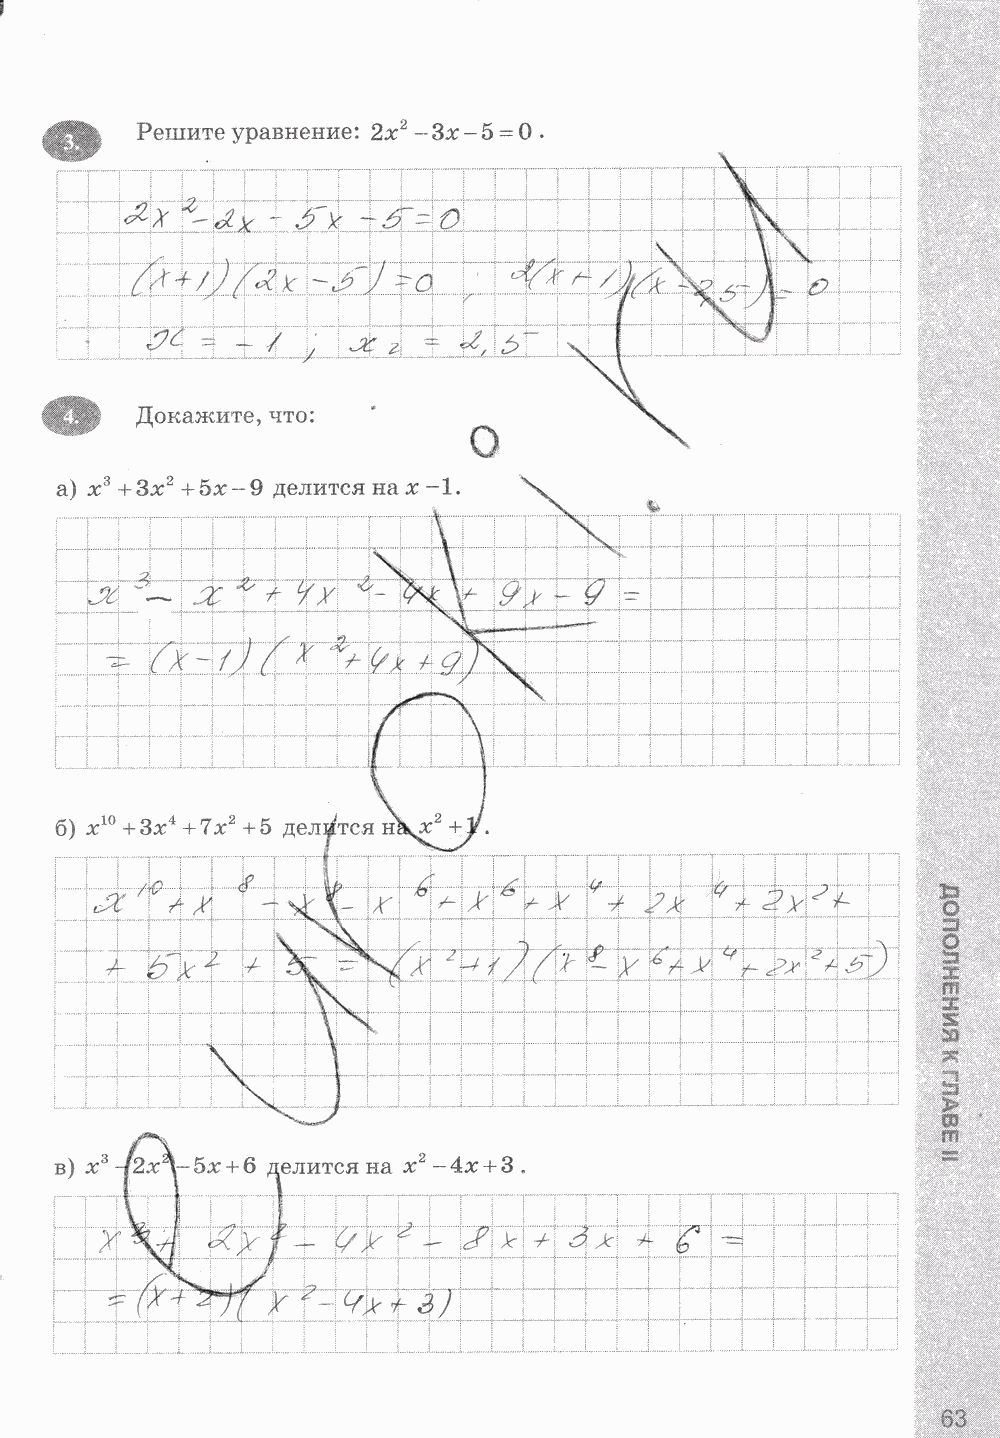 3. Решите уравнение: 2x² − 3x − 5 = 0 .
2x² − 2x − 5x − 5 = 0
(x+1)(2x − 5) = 0 ; 2(x+1)(x − 2,5) = 0
x = −1 ; x₂ = 2,5
4. Докажите, что:
а) x³ + 3x² + 5x − 9 делится на x − 1.
x³ − x² + 4x² − 4x + 9x − 9 =
= (x−1)(x² + 4x + 9)
б) x¹⁰ + 3x⁴ + 7x² + 5 делится на x² + 1 .
x¹⁰ + x⁸ − x⁸ − x⁶ + x⁶ + x⁴ + 2x⁴ + 2x² +
+ 5x² + 5 = (x² + 1)(x⁸ − x⁶ + x⁴ + 2x² + 5)
в) x³ − 2x² − 5x + 6 делится на x² − 4x + 3 .
x³ + 2x² − 4x² − 8x + 3x + 6 =
= (x+2)(x² − 4x + 3)
ДОПОЛНЕНИЯ К ГЛАВЕ II
63